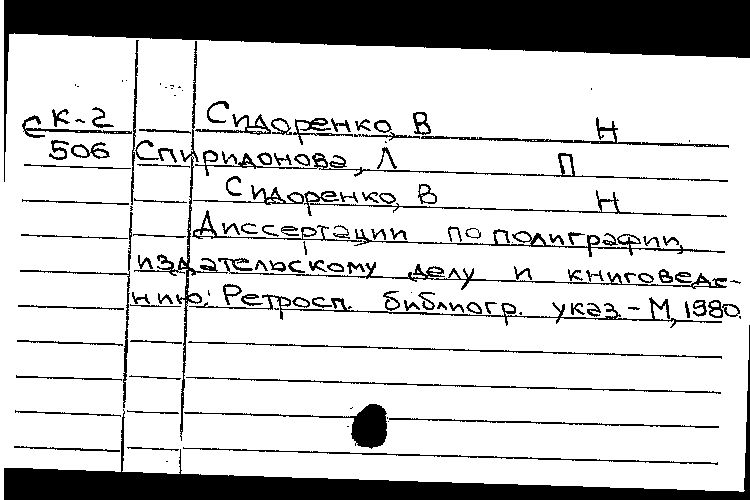 С К-2 Сидоренко, В Н
506 Спиридонова, Л П
Сидоренко, В Н
Диссертации по полиграфии,
издательскому делу и книговеде-
нию: Ретросп. библиогр. указ. - М, 1980.